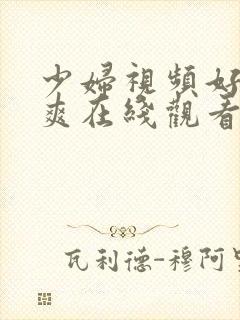 少婦視頻好
爽在綫觀看
瓦利德-穆阿